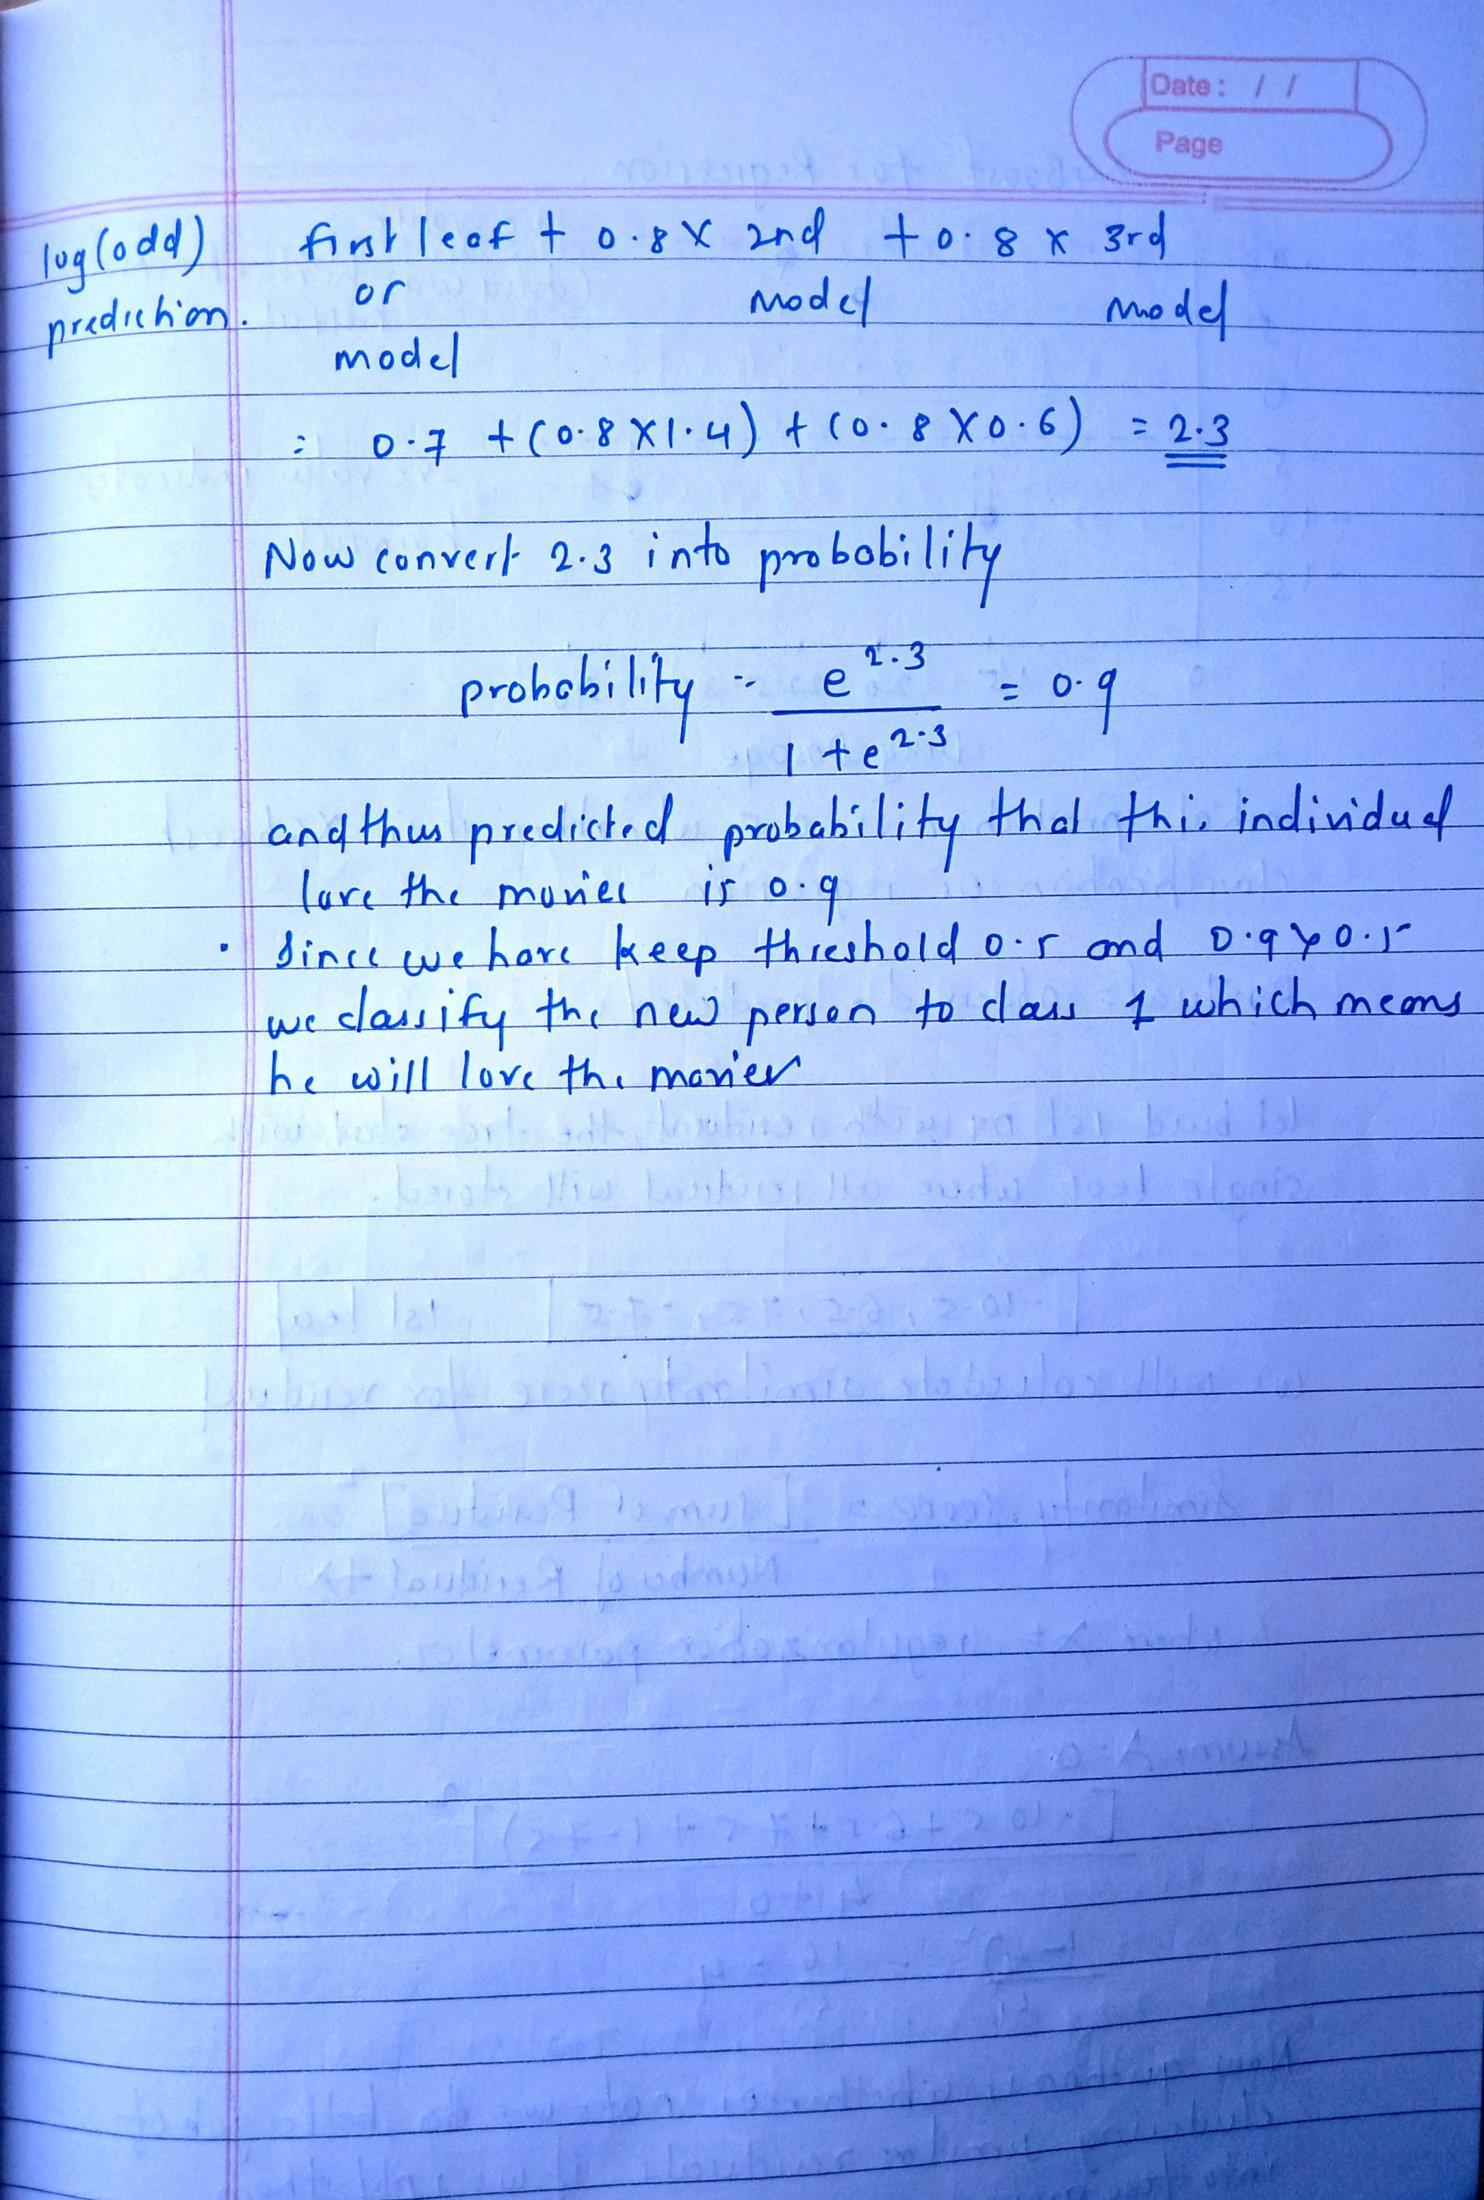 Date: / /
Page
log(odd) first leaf + 0.8 X 2nd + 0.8 x 3rd
prediction. or model model
model
= 0.7 + (0.8 X 1.4) + (0.8 X 0.6) = 2.3
Now convert 2.3 into probability
probability = e^2.3 / 1 + e^2.3 = 0.9
and thus predicted probability that this individual
love the movies is 0.9
• Since we have keep threshold 0.5 and 0.9 > 0.5
we classify the new person to class 1 which means
he will love the movies